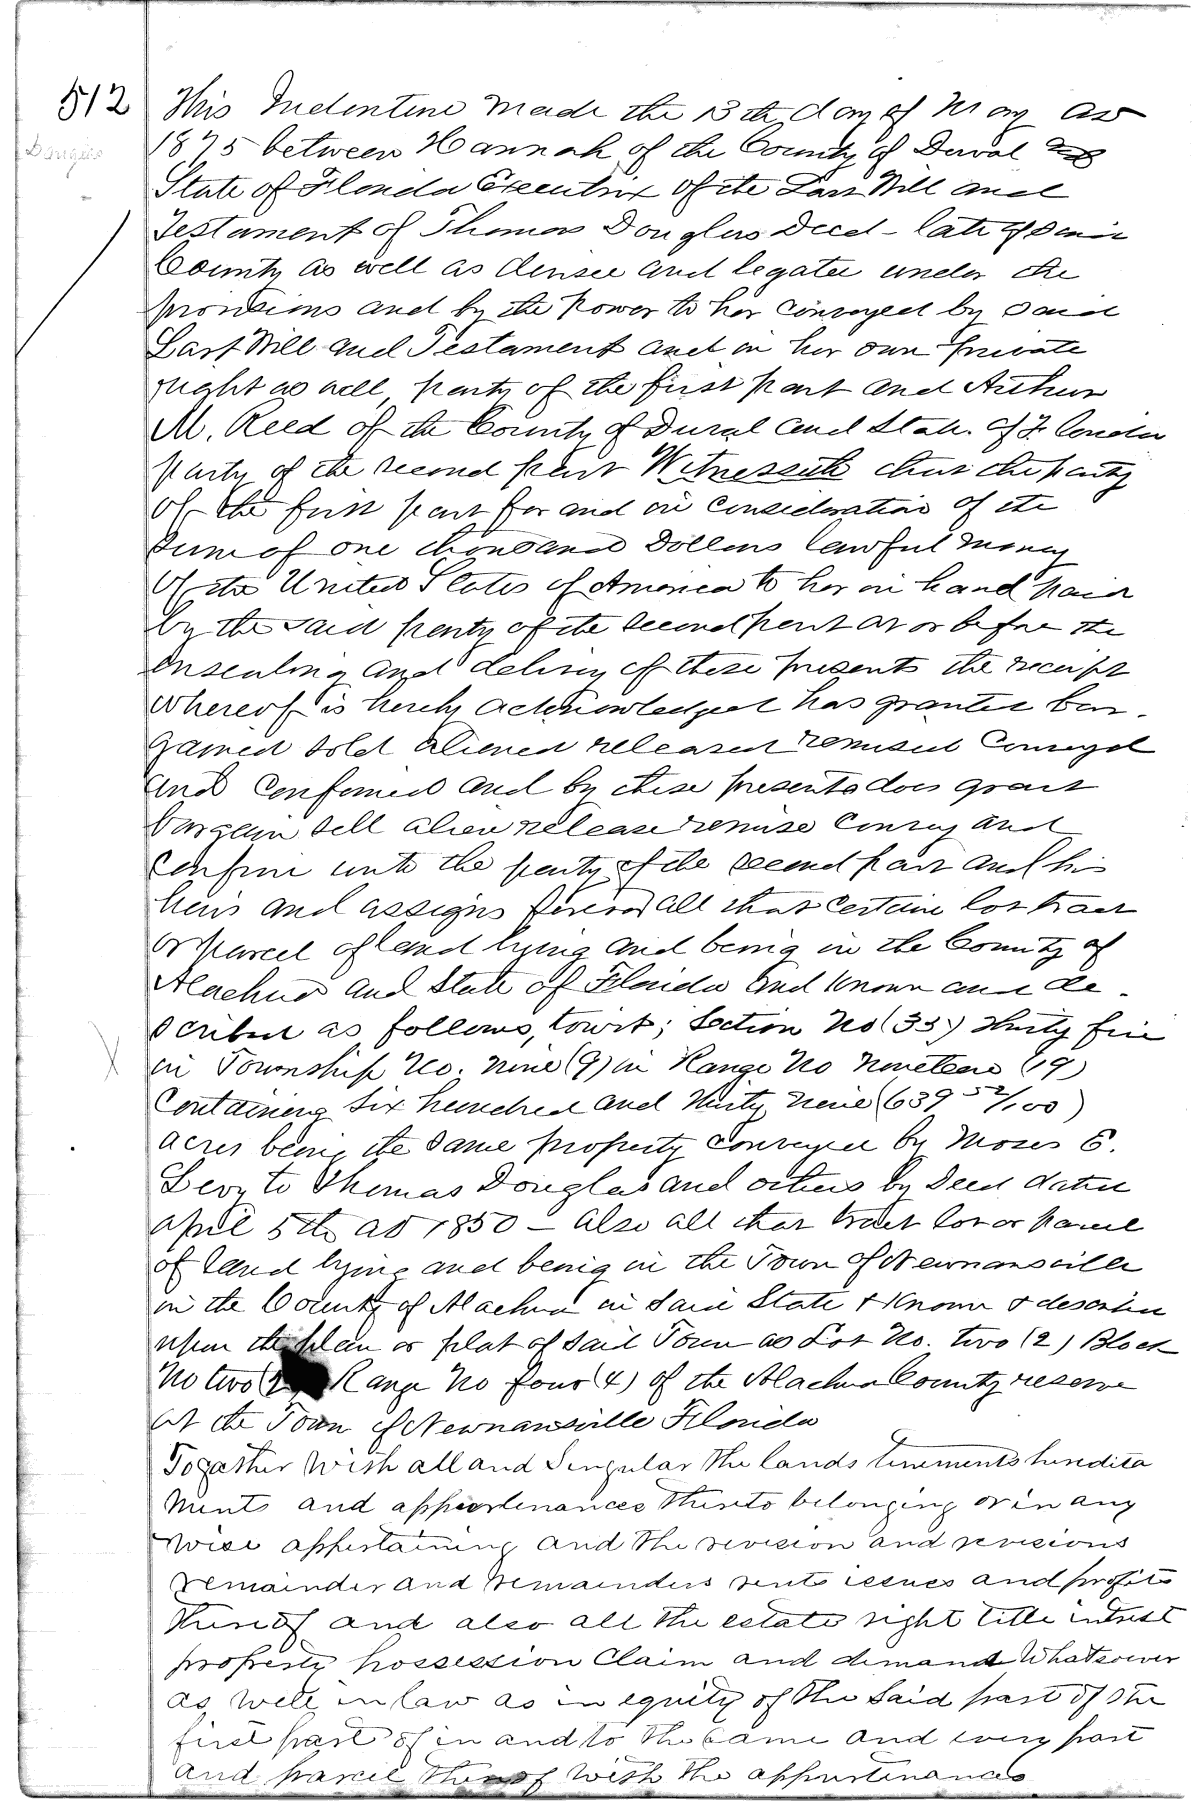 512
This Indenture made the 13th day of May AD
1875 between Hannah of the County of Duval and
State of Florida Executrix of the Last Will and
Testament of Thomas Douglas Decd - late of said
County as well as devisee and legatee under the
provisions and by the Power to her conveyed by said
Last Will and Testament and in her own private
right as well, party of the first part and Arthur
M. Reed of the County of Duval and State of Florida
party of the second part Witnesseth that the party
of the first part for and in consideration of the
sum of one thousand Dollars lawful money
of the United States of America to her in hand paid
by the said party of the second part at or before the
ensealing and delivy of these presents the receipt
whereof is hereby acknowledged has granted bar-
gained sold aliened released remised conveyed
and confirmed and by these presents does grant
bargain sell alien release remise convey and
confirm unto the party of the second part and his
heirs and assigns forever all that certain lot tract
or parcel of land lying and being in the County of
Alachua and State of Florida and known and de-
scribed as follows, towit; Section No (35) thirty five
in Township No. nine (9) in Range No nineteen (19)
containing six hundred and thirty nine (639 52/100)
acres being the same property conveyed by Moses E.
Levy to Thomas Douglas and others by Deed dated
april 5th AD 1850 - also all that tract lot or parcel
of land lying and being in the Town of Newnansville
in the County of Alachua in said State & known & described
upon the plan or plat of said Town as Lot No. two (2) Block
No two (2) Range No four (4) of the Alachua County reserve
at the Town of Newnansville Florida
Together with all and Singular the lands tenements heredita
ments and appurtenances thereto belonging or in any
wise appertaining and the revision and revisions
remainder and remainders rents issues and profits
thereof and also all the estate right title intrest
property possession Claim and demand Whatsoever
as well in law as in equity of the said part of the
first part of in and to the same and every part
and parcel thereof with the appurtenances